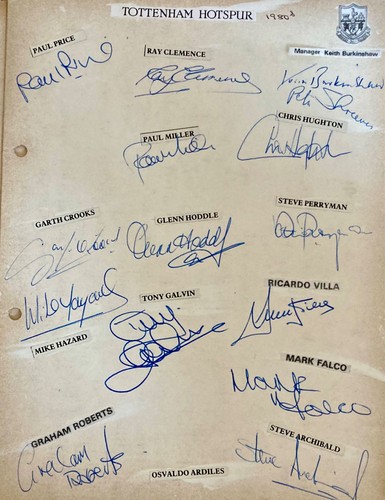 TOTTENHAM HOTSPUR 1980s
PAUL PRICE
RAY CLEMENCE
Manager Keith Burkinshaw
Paul Price
Ray Clemence
Keith Burkinshaw
Peter Shreeves
PAUL MILLER
CHRIS HUGHTON
Paul Miller
Chris Hughton
GARTH CROOKS
GLENN HODDLE
STEVE PERRYMAN
Garth Crooks
Glenn Hoddle
Steve Perryman
TONY GALVIN
RICARDO VILLA
Mike Hazard
Tony Galvin
MIKE HAZARD
MARK FALCO
Mark Falco
GRAHAM ROBERTS
STEVE ARCHIBALD
Graham Roberts
Steve Archibald
OSVALDO ARDILES